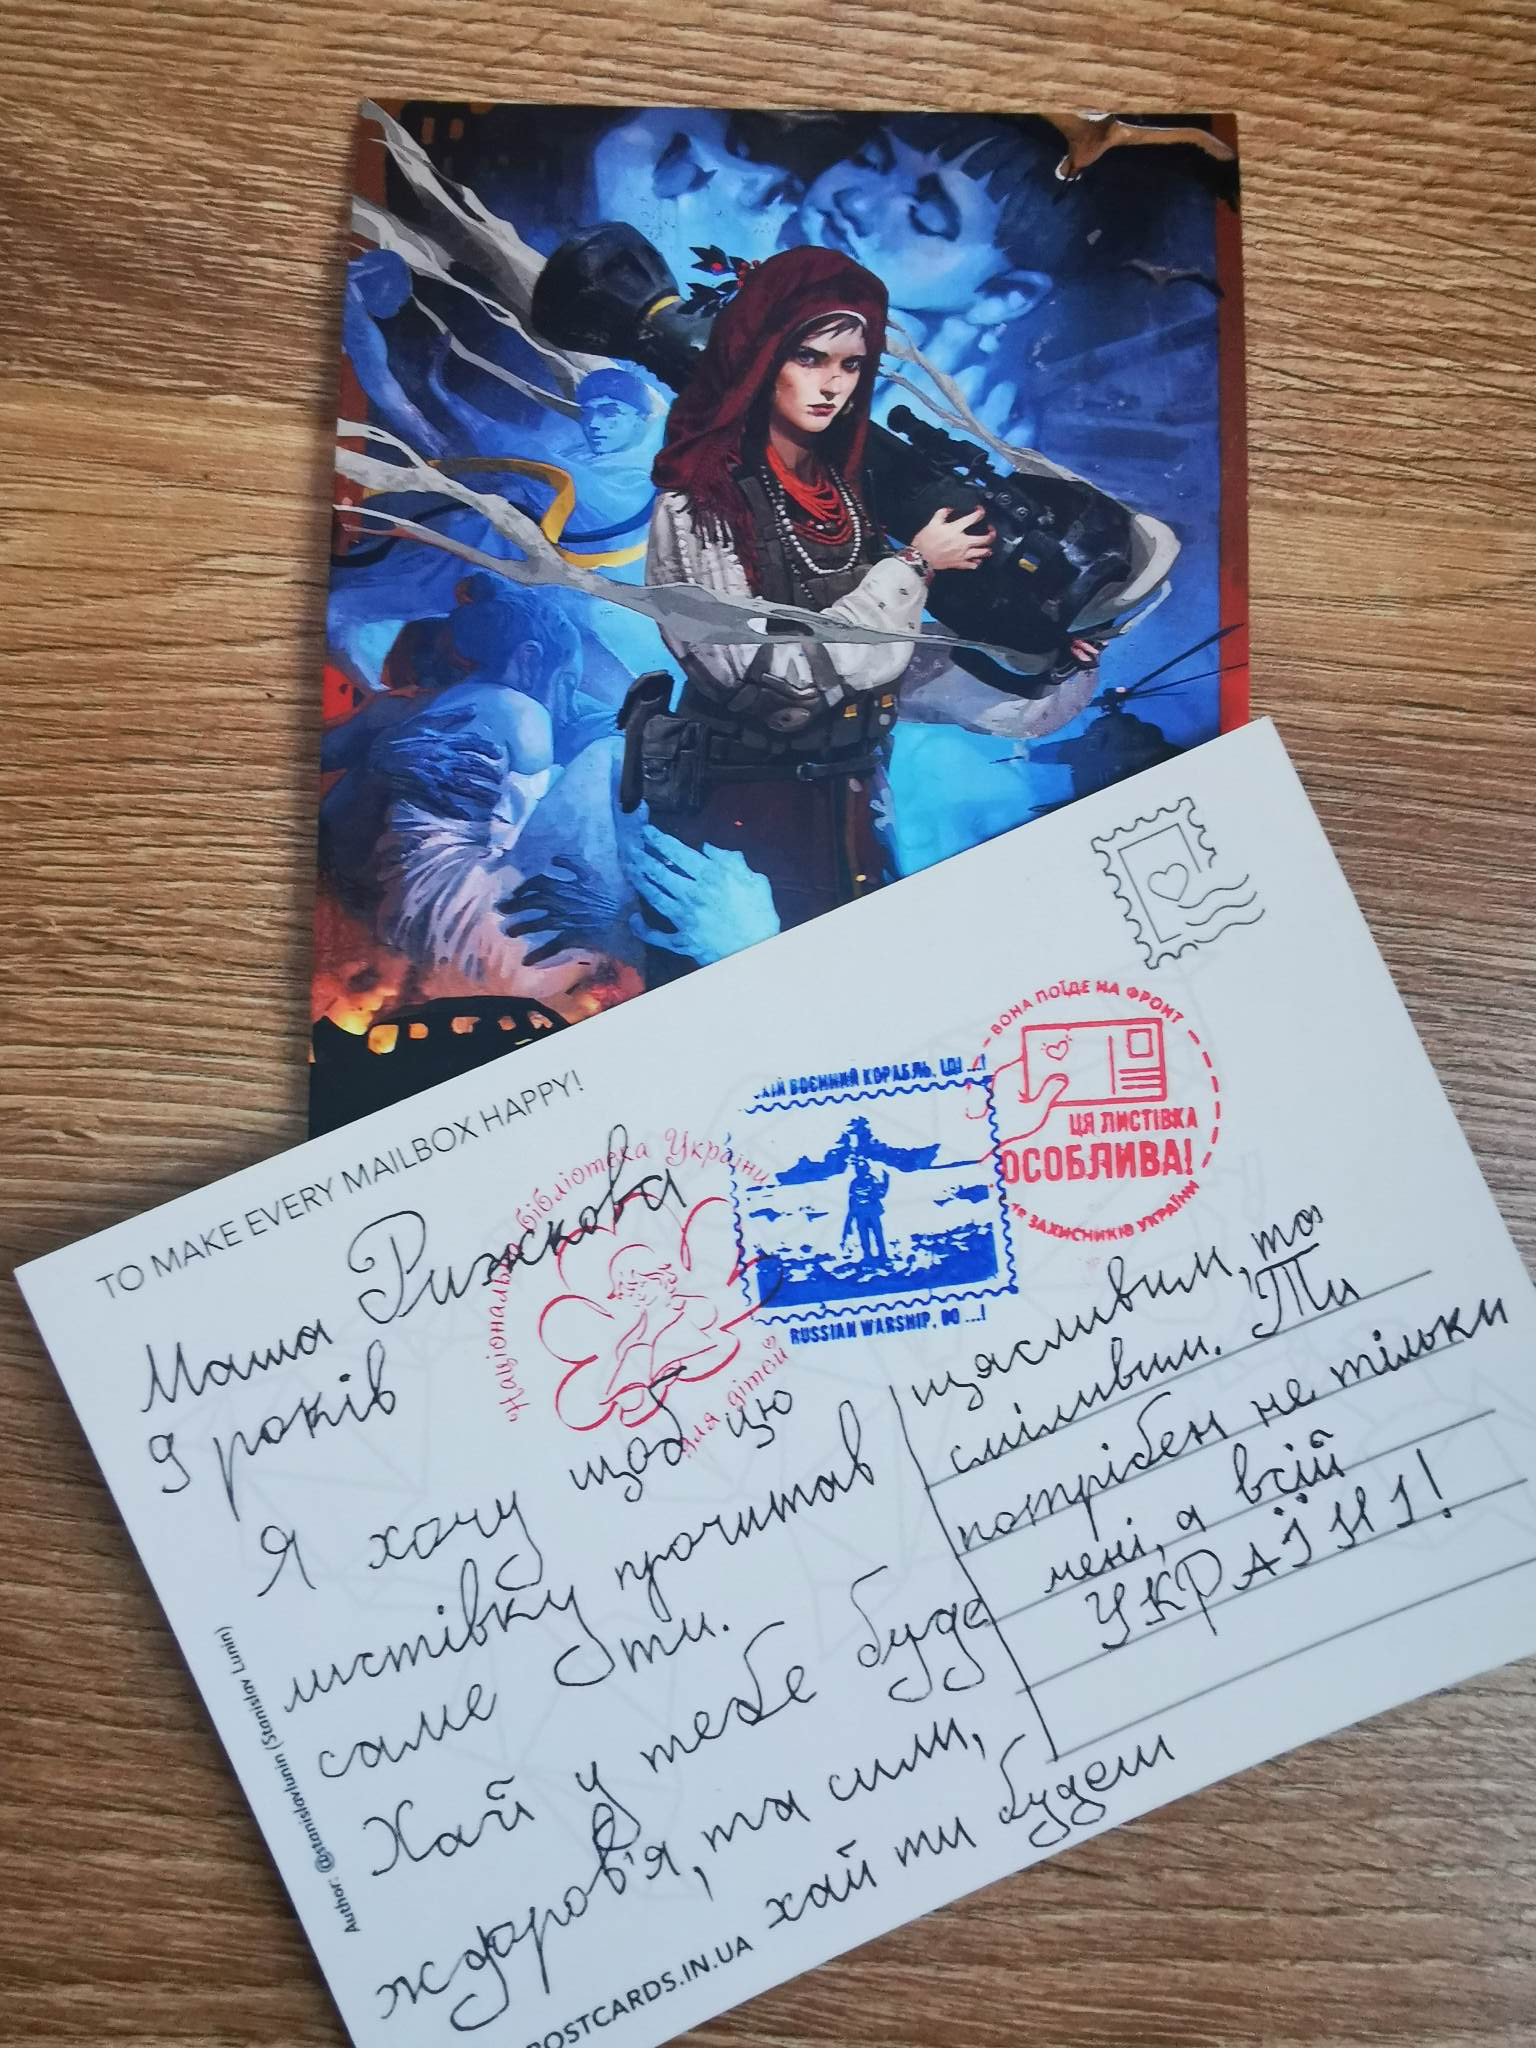 TO MAKE EVERY MAILBOX HAPPY!
Маша Рижкова
9 років
Я хочу щоб цю
листівку прочитав
саме ти.
Хай у тебе буде
здоров'я, та сили,
хай ти будеш
щасливим, та
сміливим. Ти
потрібен не тільки
мені, а всій
УКРАЇНІ!
Національна бібліотека України
для дітей
ВОЄННИЙ КОРАБЛЬ, ІДІ ...!
RUSSIAN WARSHIP, DO ...!
ВОНА ПОЇДЕ НА ФРОНТ
ЦЯ ЛИСТІВКА
ОСОБЛИВА!
ЗАХИСНИКІВ УКРАЇНИ
Author: @stanislavlunin (Stanislav Lunin)
POSTCARDS.IN.UA